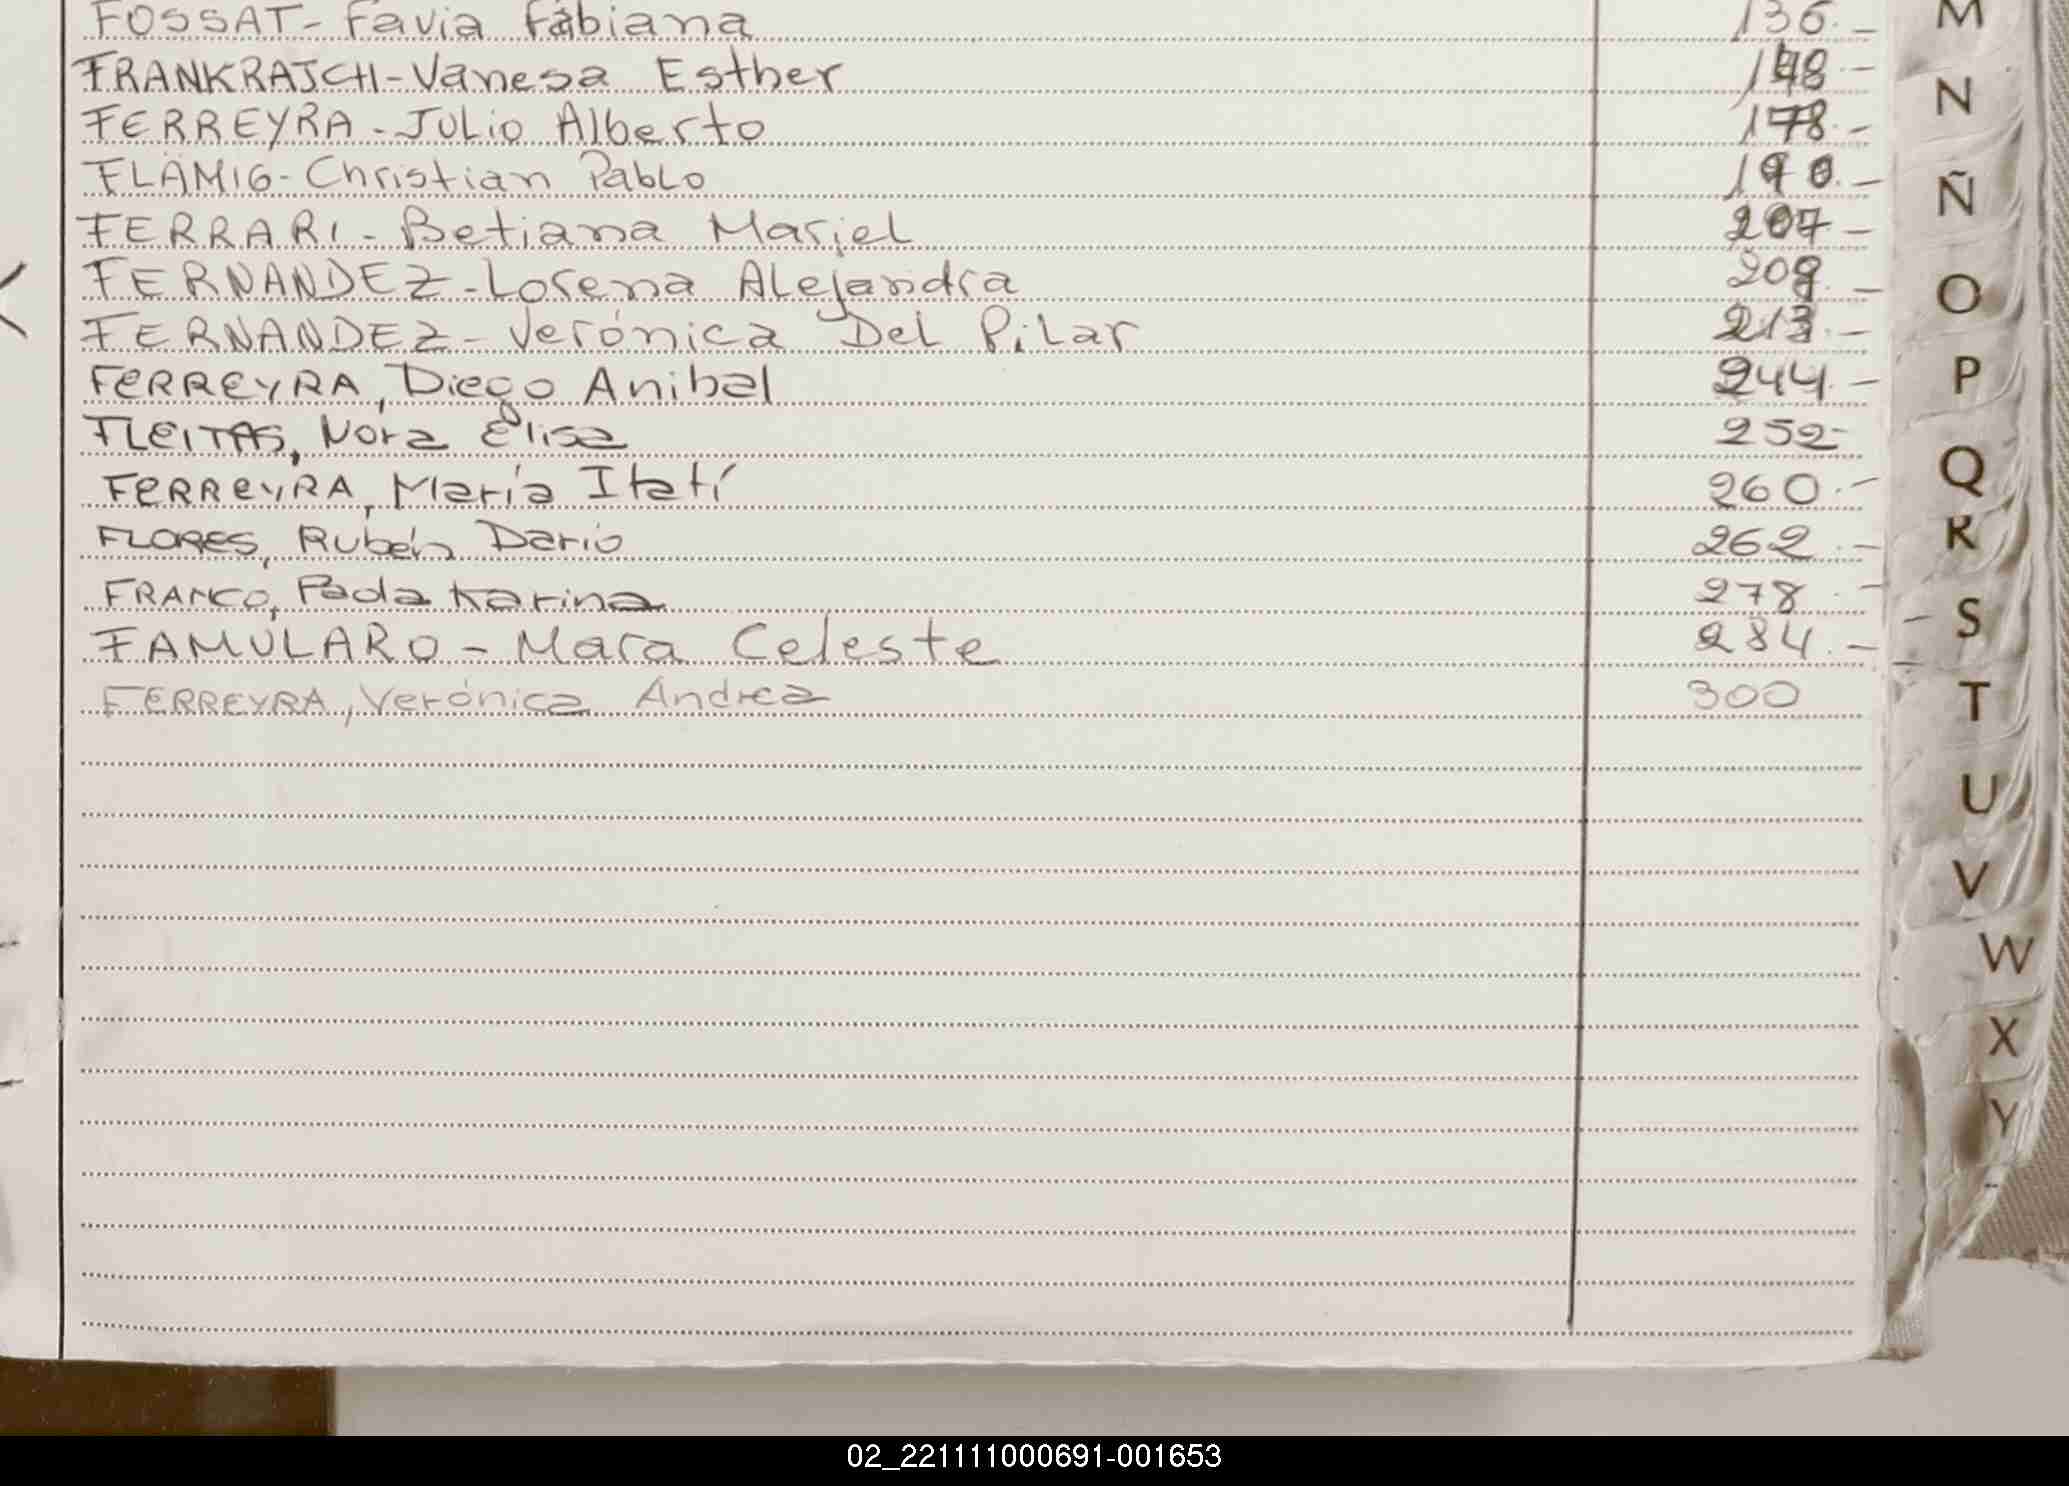 FOSSAT - Favia Fabiana 136.-
FRANKRAJCH - Vanesa Esther 148.-
FERREYRA - Julio Alberto 178.-
FLÄMIG - Christian Pablo 190.-
FERRARI - Betiana Mariel 207.-
FERNANDEZ - Lorena Alejandra 209.-
FERNANDEZ - Verónica Del Pilar 213.-
FERREYRA, Diego Anibal 244.-
FLEITAS, Nora Elisa 252-
FERREYRA, María Itatí 260.-
FLORES, Rubén Dario 262.-
FRANCO, Paola Karina 278.-
FAMULARO - Mara Celeste 284.-
FERREYRA, Verónica Andrea 300
M
N
Ñ
O
P
Q
R
S
T
U
V
W
X
Y
02_221111000691-001653